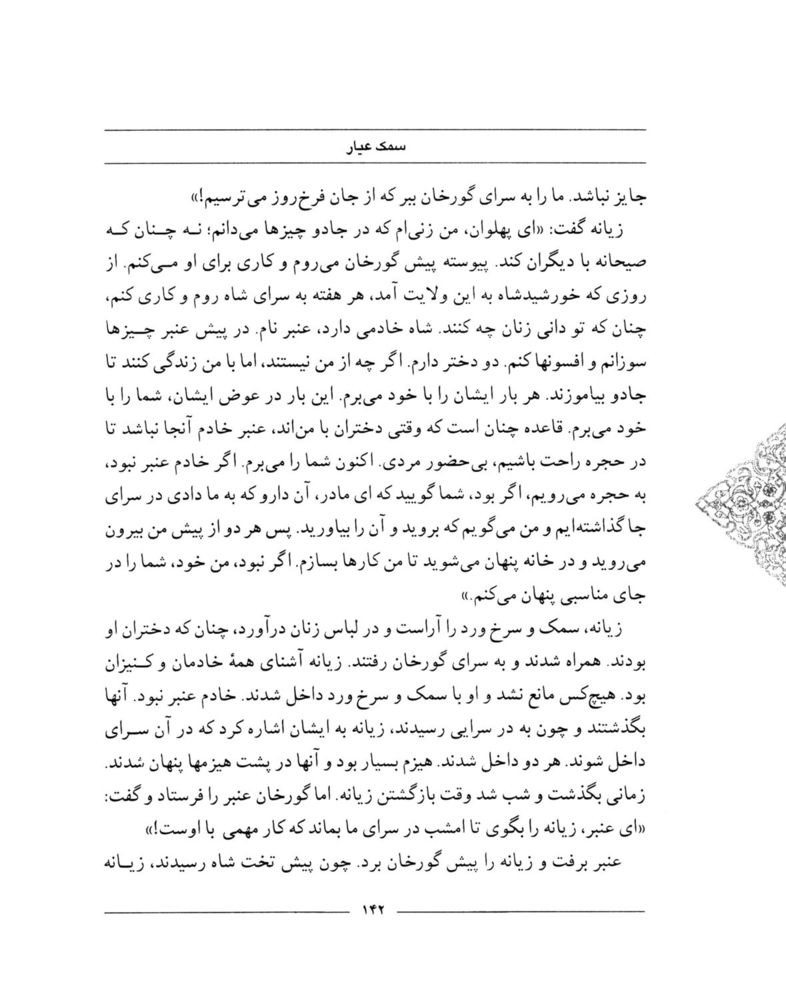 سمک عیار
جایز نباشد. ما را به سرای گورخان ببر که از جان فرخ‌روز می‌ترسیم!»
زیانه گفت: «ای پهلوان، من زنی‌ام که در جادو چیزها می‌دانم؛ نه چنان که
صیحانه با دیگران کند. پیوسته پیش گورخان می‌روم و کاری برای او می‌کنم. از
روزی که خورشیدشاه به این ولایت آمد، هر هفته به سرای شاه روم و کاری کنم،
چنان که تو دانی زنان چه کنند. شاه خادمی دارد، عنبر نام. در پیش عنبر چیزها
سوزانم و افسونها کنم. دو دختر دارم. اگر چه از من نیستند، اما با من زندگی کنند تا
جادو بیاموزند. هر بار ایشان را با خود می‌برم. این بار در عوض ایشان، شما را با
خود می‌برم. قاعده چنان است که وقتی دختران با من‌اند، عنبر خادم آنجا نباشد تا
در حجره راحت باشیم، بی‌حضور مردی. اکنون شما را می‌برم. اگر خادم عنبر نبود،
به حجره می‌رویم، اگر بود، شما گویید که ای مادر، آن دارو که به ما دادی در سرای
جا گذاشته‌ایم و من می‌گویم که بروید و آن را بیاورید. پس هر دو از پیش من بیرون
می‌روید و در خانه پنهان می‌شوید تا من کارها بسازم. اگر نبود، من خود، شما را در
جای مناسبی پنهان می‌کنم.»
زیانه، سمک و سرخ ورد را آراست و در لباس زنان درآورد، چنان که دختران او
بودند. همراه شدند و به سرای گورخان رفتند. زیانه آشنای همهٔ خادمان و کنیزان
بود. هیچ‌کس مانع نشد و او با سمک و سرخ ورد داخل شدند. خادم عنبر نبود. آنها
بگذشتند و چون به در سرایی رسیدند، زیانه به ایشان اشاره کرد که در آن سرای
داخل شوند. هر دو داخل شدند. هیزم بسیار بود و آنها در پشت هیزمها پنهان شدند.
زمانی بگذشت و شب شد وقت بازگشتن زیانه. اما گورخان عنبر را فرستاد و گفت:
«ای عنبر، زیانه را بگوی تا امشب در سرای ما بماند که کار مهمی با اوست!»
عنبر برفت و زیانه را پیش گورخان برد. چون پیش تخت شاه رسیدند، زیانه
۱۴۲